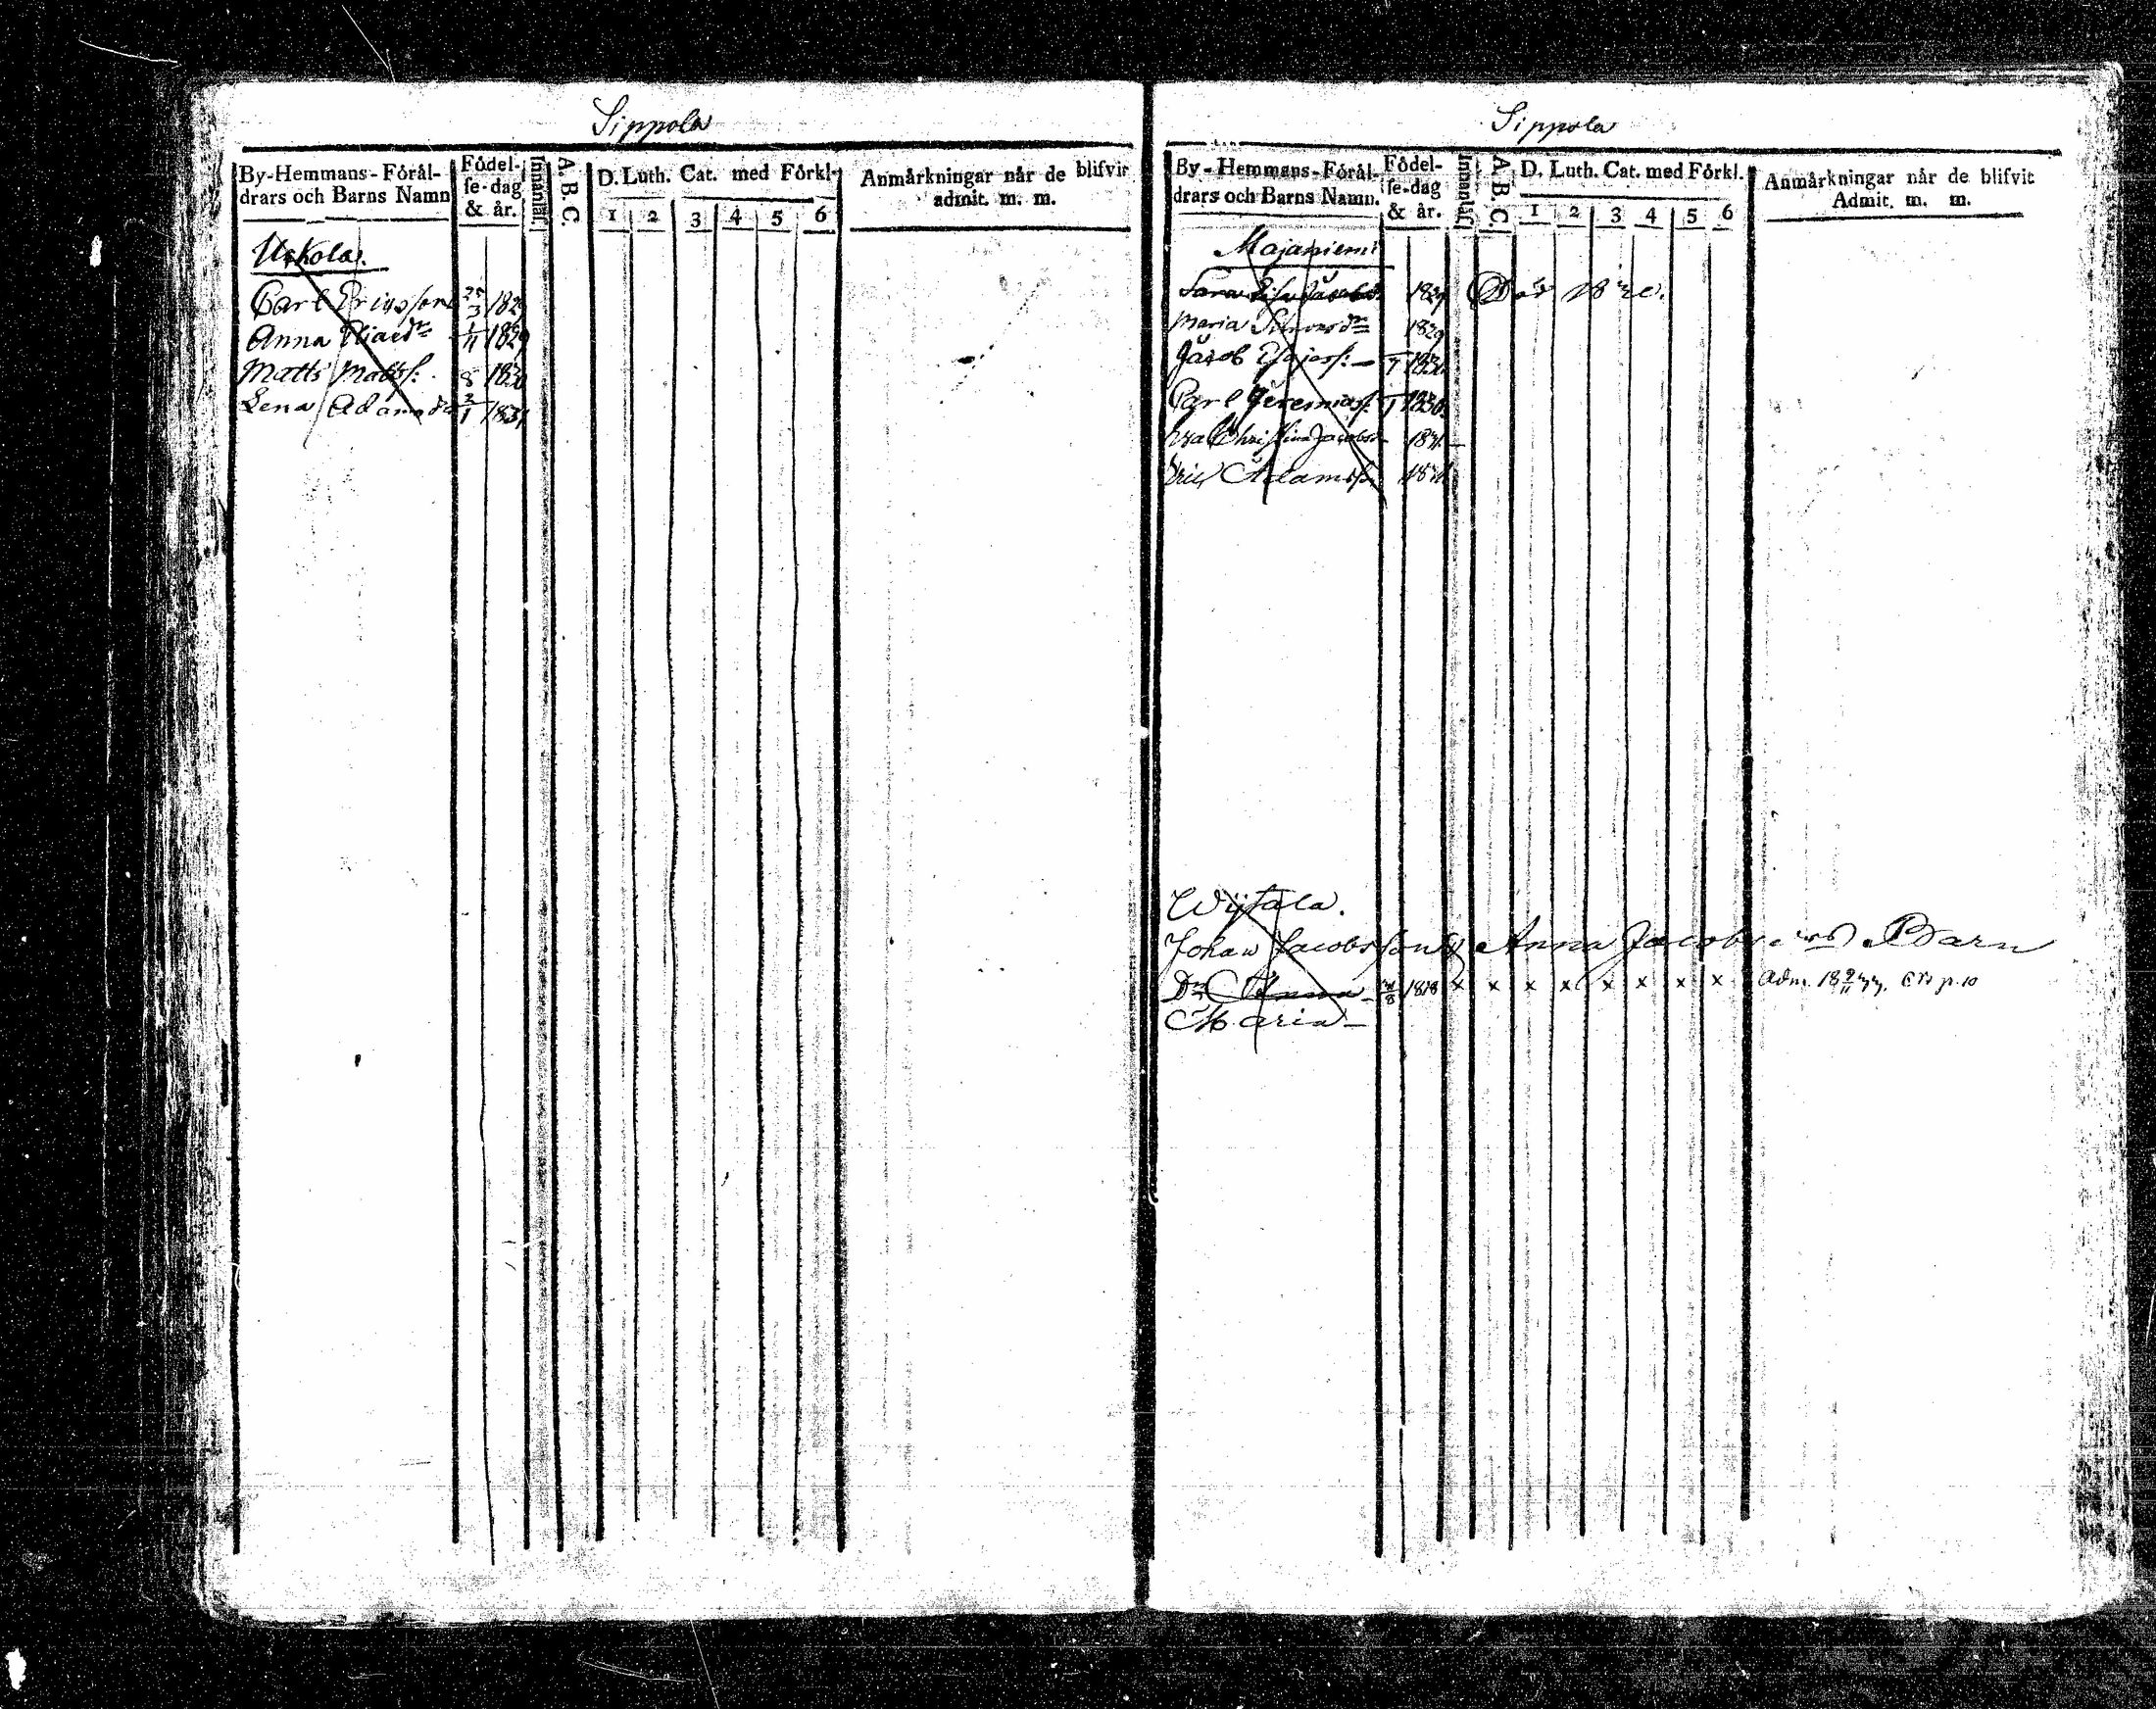 Sippola
By-Hemmans-Förål-
drars och Barns Namn
Födel-
se-dag
& år.
Innanläs
A. B. C.
D. Luth. Cat. med Förkl.
1 2 3 4 5 6
Anmärkningar når de blifvit
admit. m. m.
Uskola.
Carl Ericsson 25/3 1829
Anna Eliaedr 1/11 1829
Matts Mattss: 8 1830
Lena Adamsdr 2/1 1831
Sippola
By-Hemmans-Förål-
drars och Barns Namn.
Födel-
se-dag
& år.
Innanläs
A. B. C.
D. Luth. Cat. med Förkl.
1 2 3 4 5 6
Anmärkningar når de blifvit
Admit. m. m.
Majaniemi
Sara Lisa Jacobsd. 1829 Död 1830.
Maria Simonsdr 1829
Jacob Esajass:
Carl Jeremiass: 1830
Eva Christina Jacobsd 1831
Eric Adamss. 1831
Wijtala.
Johan Jacobsson & Anna Jacobsd Barn
Dr Anna 8 1818 x x x x x x x x Adm. p. 10
Maria